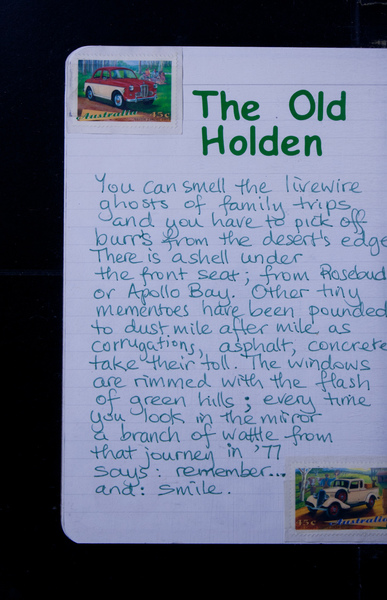 Australia 45c
The Old
Holden
You can smell the livewire
ghosts of family trips
and you have to pick off
burrs from the desert's edge
There is a shell under
the front seat; from Rosebud
or Apollo Bay. Other tiny
mementoes have been pounded
to dust mile after mile as
corrugations, asphalt, concrete
take their toll. The windows
are rimmed with the flash
of green hills; every time
you look in the mirror
a branch of wattle from
that journey in '77
says: remember...
and: smile.
45c Australia